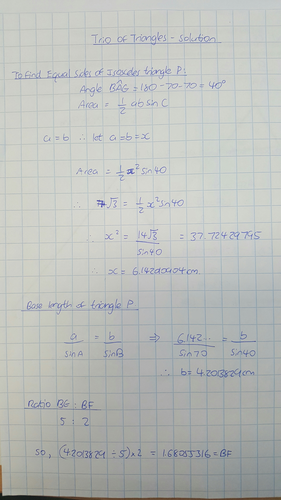 Trio of Triangles - Solution
To find Equal sides of Isosceles triangle P:
Angle BÂG = 180 - 70 - 70 = 40°
Area = 1/2 ab sin C
a = b ∴ let a = b = x
Area = 1/2 x² sin 40
∴ 7√3 = 1/2 x² sin 40
∴ x² = 14√3 / sin 40 = 37.72429745
∴ x = 6.14200904 cm
Base length of triangle P
a / sin A = b / sin B ⇒ 6.142... / sin 70 = b / sin 40
∴ b = 4.2013829 cm
Ratio BG : BF
5 : 2
so, (4.2013829 ÷ 5) × 2 = 1.68055316 = BF